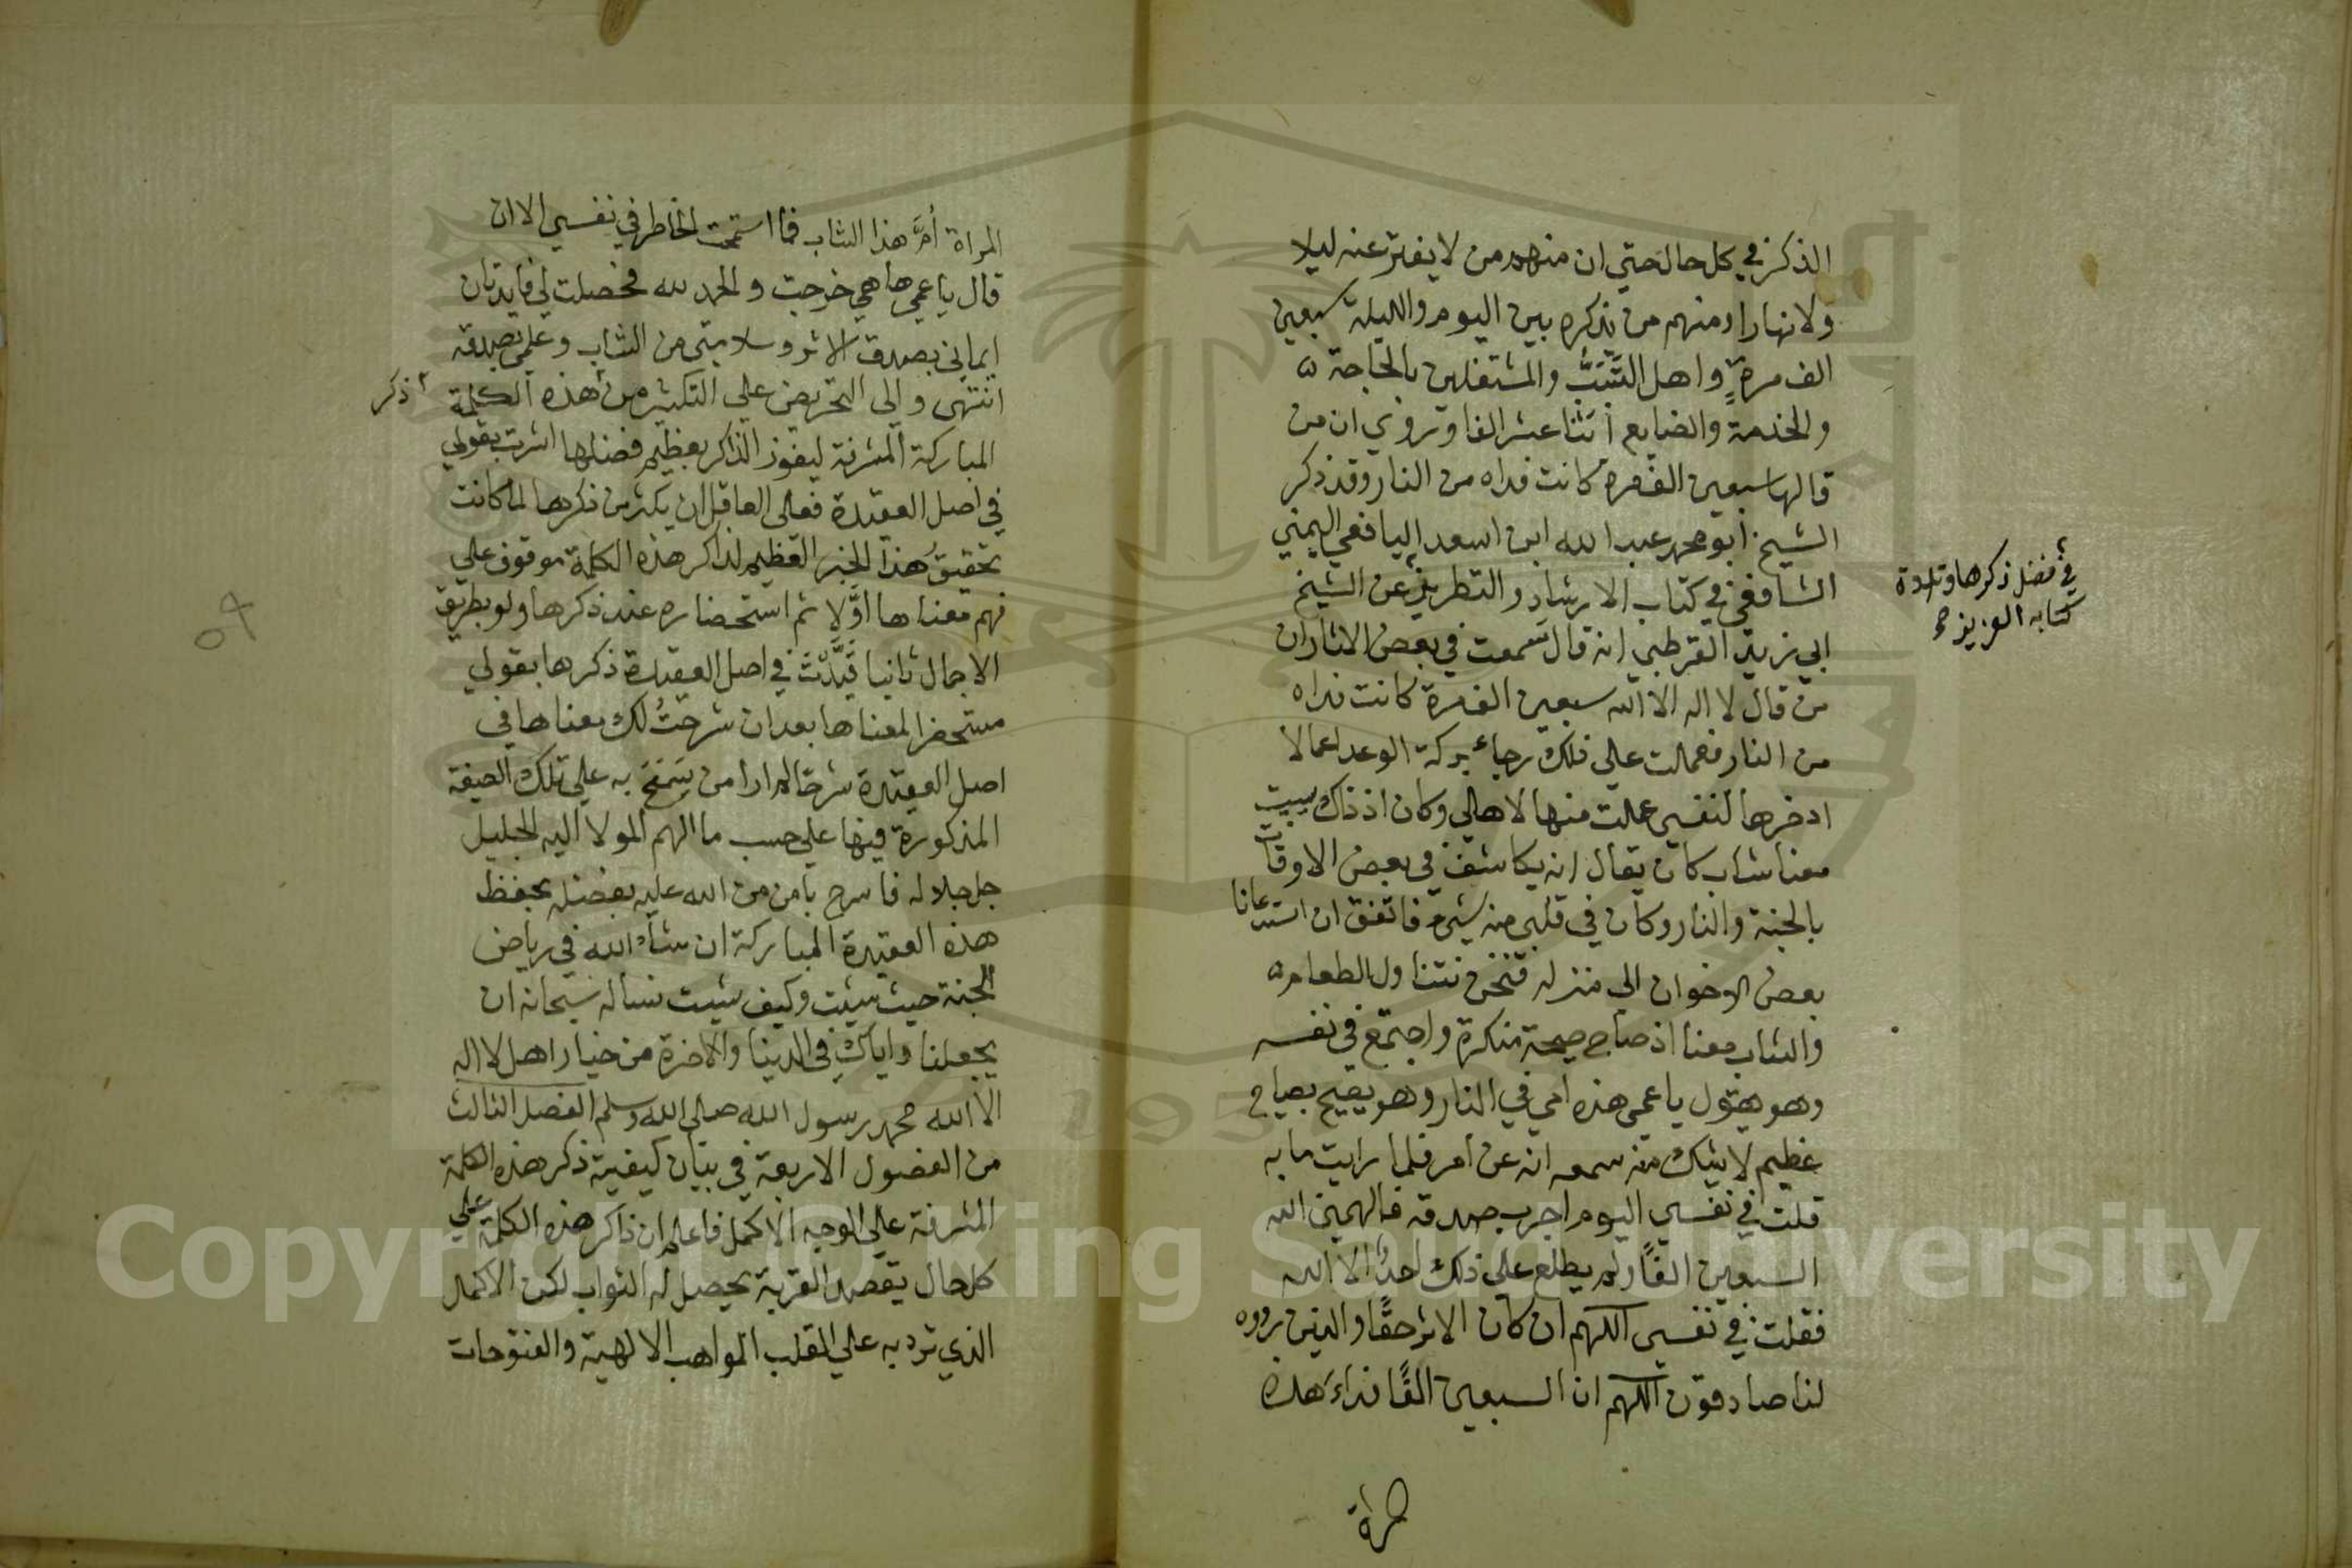 الذكر في كل حال حتي ان منهم من لا يفتر عنه ليلا
ولا نهارا ومنهم من يذكره بين اليوم والليلة سبعين
الف مرة واهل التسبب والمشتغلين بالحاجة
والخدمة والضايع اثنا عشر الفا وروي ان من
قالها سبعين الف مرة كانت فداه من النار وقد ذكر
الشيخ ابو محمد عبد الله ابن اسعد اليافعي اليمني
الشافعي في كتاب الارشاد والتطريز عن الشيخ
في فضل ذكرها وتلاوة
كتابه العزيز صح
ابي زيد القرطبي انه قال سمعت في بعض الاثار ان
من قال لا اله الا الله سبعين الف مرة كانت فداه
من النار فعملت علي ذلك رجاء بركة الوعد اعمالا
ادخرها لنفسي عملت منها لاهلي وكان اذ ذاك يبيت
معنا شاب كان يقال انه يكاشف في بعض الاوقات
بالجنة والنار وكان في قلبي منه شيء فاتفق ان استدعانا
بعض الاخوان الي منزله فنحن نتناول الطعام
والشاب معنا اذ صاح صيحة منكرة واجتمع في نفسه
وهو يقول يا عمي هذه امي في النار وهو يصيح بصياح
عظيم لا يشك من سمعه انه عن امر فلما رايت ما به
قلت في نفسي اليوم اجرب صدقه فالهمني الله
السبعين الفًا ولم يطلع علي ذلك احدٌ الا الله
فقلت في نفسي اللهم ان كان الاثر حقًا والذين رووه
لنا صادقون اللهم ان السبعين الفًا فداء هذه
المراة
المراة اُمَّ هذا الشاب فما استتمت الخاطر في نفسي الا ان
قال يا عمي ها هي خرجت والحمد لله فحصلت لي فايدتان
ايماني بصدق الاثر وسلامتي من الشاب وعلمي بصدقه
انتهي والي التحريض علي التكثير من هذه الكلمة
ذكر
المباركة المشرفة ليفوز الذاكر بعظيم فضلها اشرت بقولي
في اصل العقيدة فعلي العاقل ان يكثر من ذكرها لما كانت
تحقيقُ هذا الخير العظيم لذاكر هذه الكلمة موقوف علي
فهم معناها اوَّلا ثم استحضاره عند ذكرها ولو بطريق
الاجمال ثانيا قَيَّدْتُ في اصل العقيدة ذكرها بقولي
مستحضرا لمعناها بعد ان شرحتُ لك معناها في
اصل العقيدة شرحًا لم ار من سَمَحَ به علي تلك الصيغة
المذكورة فيها علي حسب ما الهم المولا اليه الجليل
جل جلاله فاسرح يا من من الله عليه بفضله بحفظ
هذه العقيدة المباركة ان شاء الله في رياض
الجنة حيث شيت وكيف شيت نساله سبحانه ان
يجعلنا واياك في الدنيا والاخرة من خيار اهل لا اله
الا الله محمد رسول الله صلي الله وسلم الفصل الثالث
من الفصول الاربعة في بيان كيفية ذكر هذه الكلمة
المشرفة علي الوجه الاكمل فاعلم ان ذاكر هذه الكلمة علي
كل حال يقصد القربة يحصل له الثواب لكن الاكمل
الذي ترد به علي القلب المواهب الالهية والفتوحات
Copyright © King Saud University